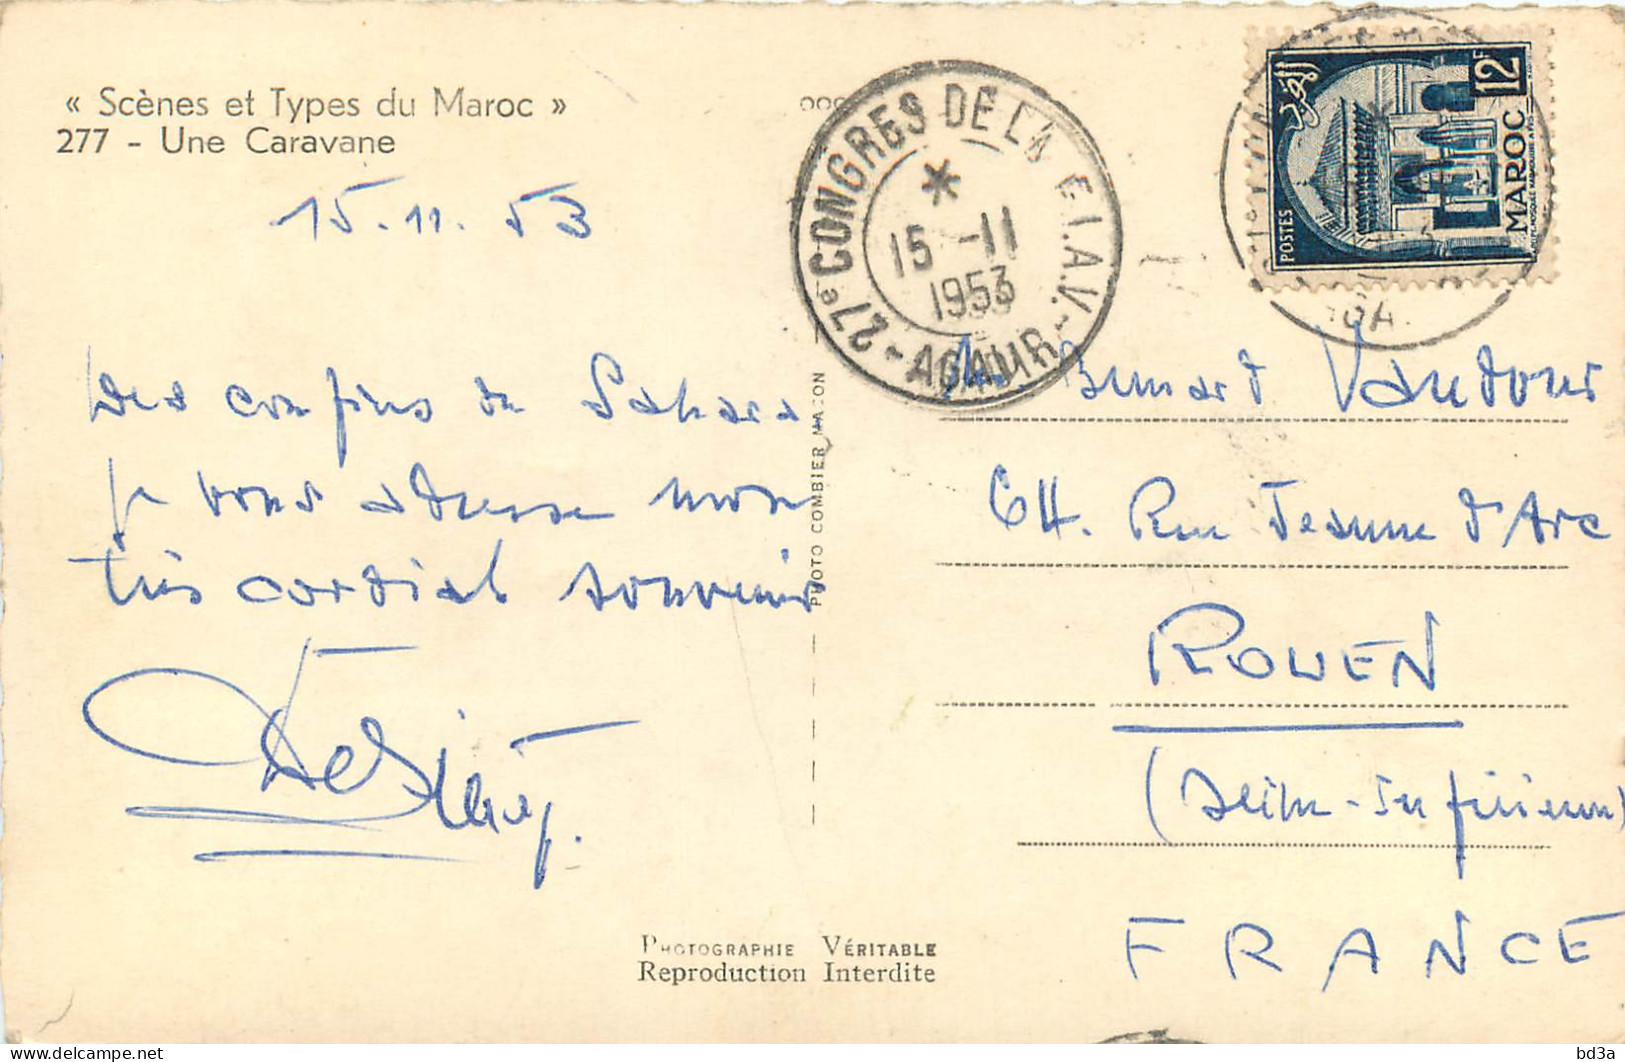 « Scènes et Types du Maroc »
277 - Une Caravane
15.11.53
Des confins du Sahara
je vous adresse mon
très cordial souvenir
PHOTO COMBIER MACON
PHOTOGRAPHIE VÉRITABLE
Reproduction Interdite
27e CONGRES DE LA F.I.A.V. - AGADIR -
15 -11
1953
POSTES
MAROC
12F
M. Bernard Vaudour
64. Rue Jeanne d'Arc
ROUEN
(Seine-Inférieure)
FRANCE
bd3a